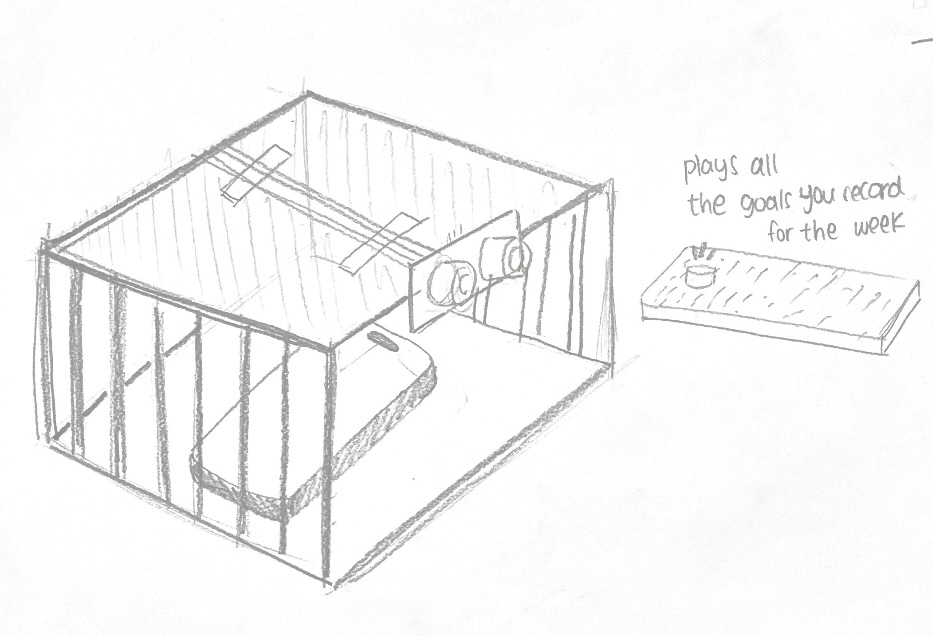 plays all
the goals you record
for the week